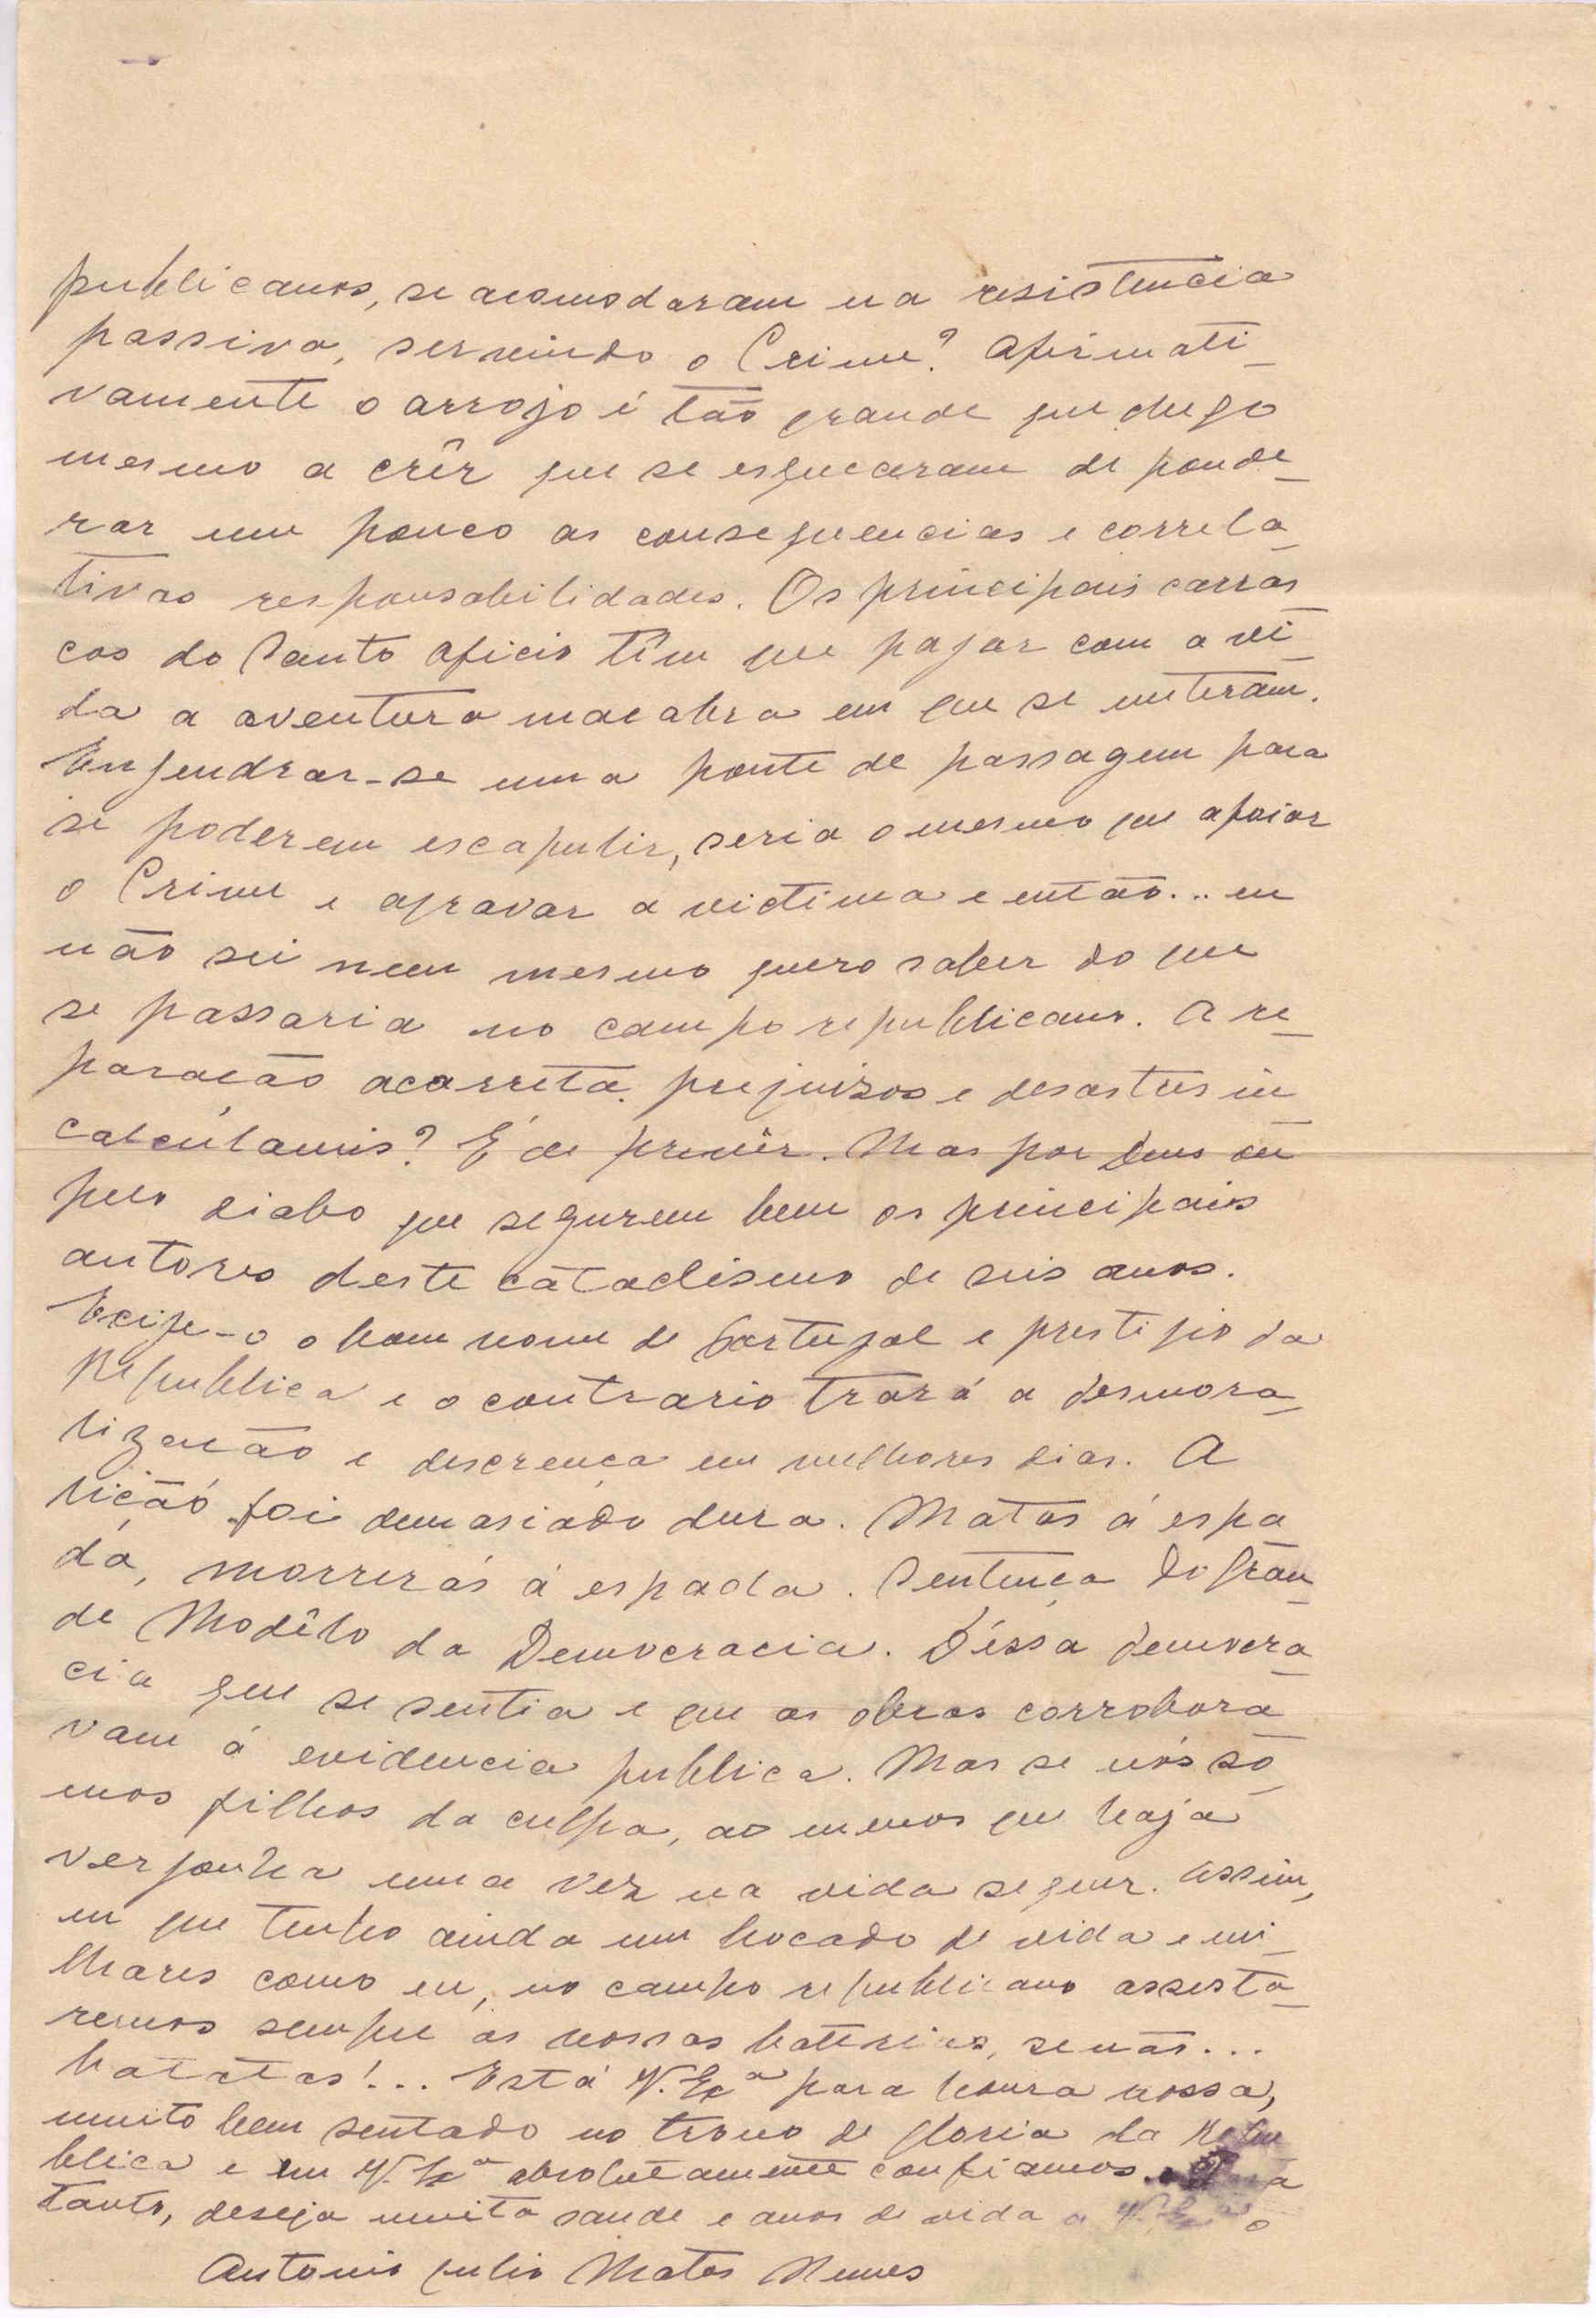 publicanos, se acomodaram na resistencia
passiva, servindo o Crime? Afirmati-
vamente o arrojo é tão grande que chego
mesmo a crêr que se esqueceram de ponde-
rar um pouco as consequencias e correla-
tivas responsabilidades. Os principais carras-
cos do Santo Oficio têm que pagar com a vi-
da a aventura macabra em que se meteram.
Engendrar-se uma ponte de passagem para
se poderem escapulir, seria o mesmo que apoiar
o Crime e agravar a victima e então... eu
não sei nem mesmo quero saber do que
se passaria no campo republicano. A re-
paração acarreta prejuizos e desastres in-
calculaveis? É de prevêr. Mas por Deus ou
pelo diabo que segurem bem os principais
autores deste cataclismo de seis anos.
Exige-o o bom nome de Portugal e prestigio da
Republica e o contrario trará a desmora-
lização e descrença em melhores dias. A
lição foi demasiado dura. Matas á espa-
da, morrerás á espada. Sentença do Gran-
de Modêlo da Democracia. Déssa democra-
cia que se sentia e que as obras corrobora-
vam á evidencia publica. Mas se nós so-
mos filhos da culpa, ao menos que haja
vergonha uma vez na vida sequer. Assim,
eu que tenho ainda um bocado de vida e mi-
lhares como eu, no campo republicano assesta-
remos sempre as nossas baterias, senão...
batatas!... Está V. Exª para honra nossa,
muito bem sentado no trono de gloria da Repu
blica e em V. Exª absolutamente confiamos.
tanto, deseja muita saude e anos de vida a V. Exª o
Antonio Julio Matos Nunes